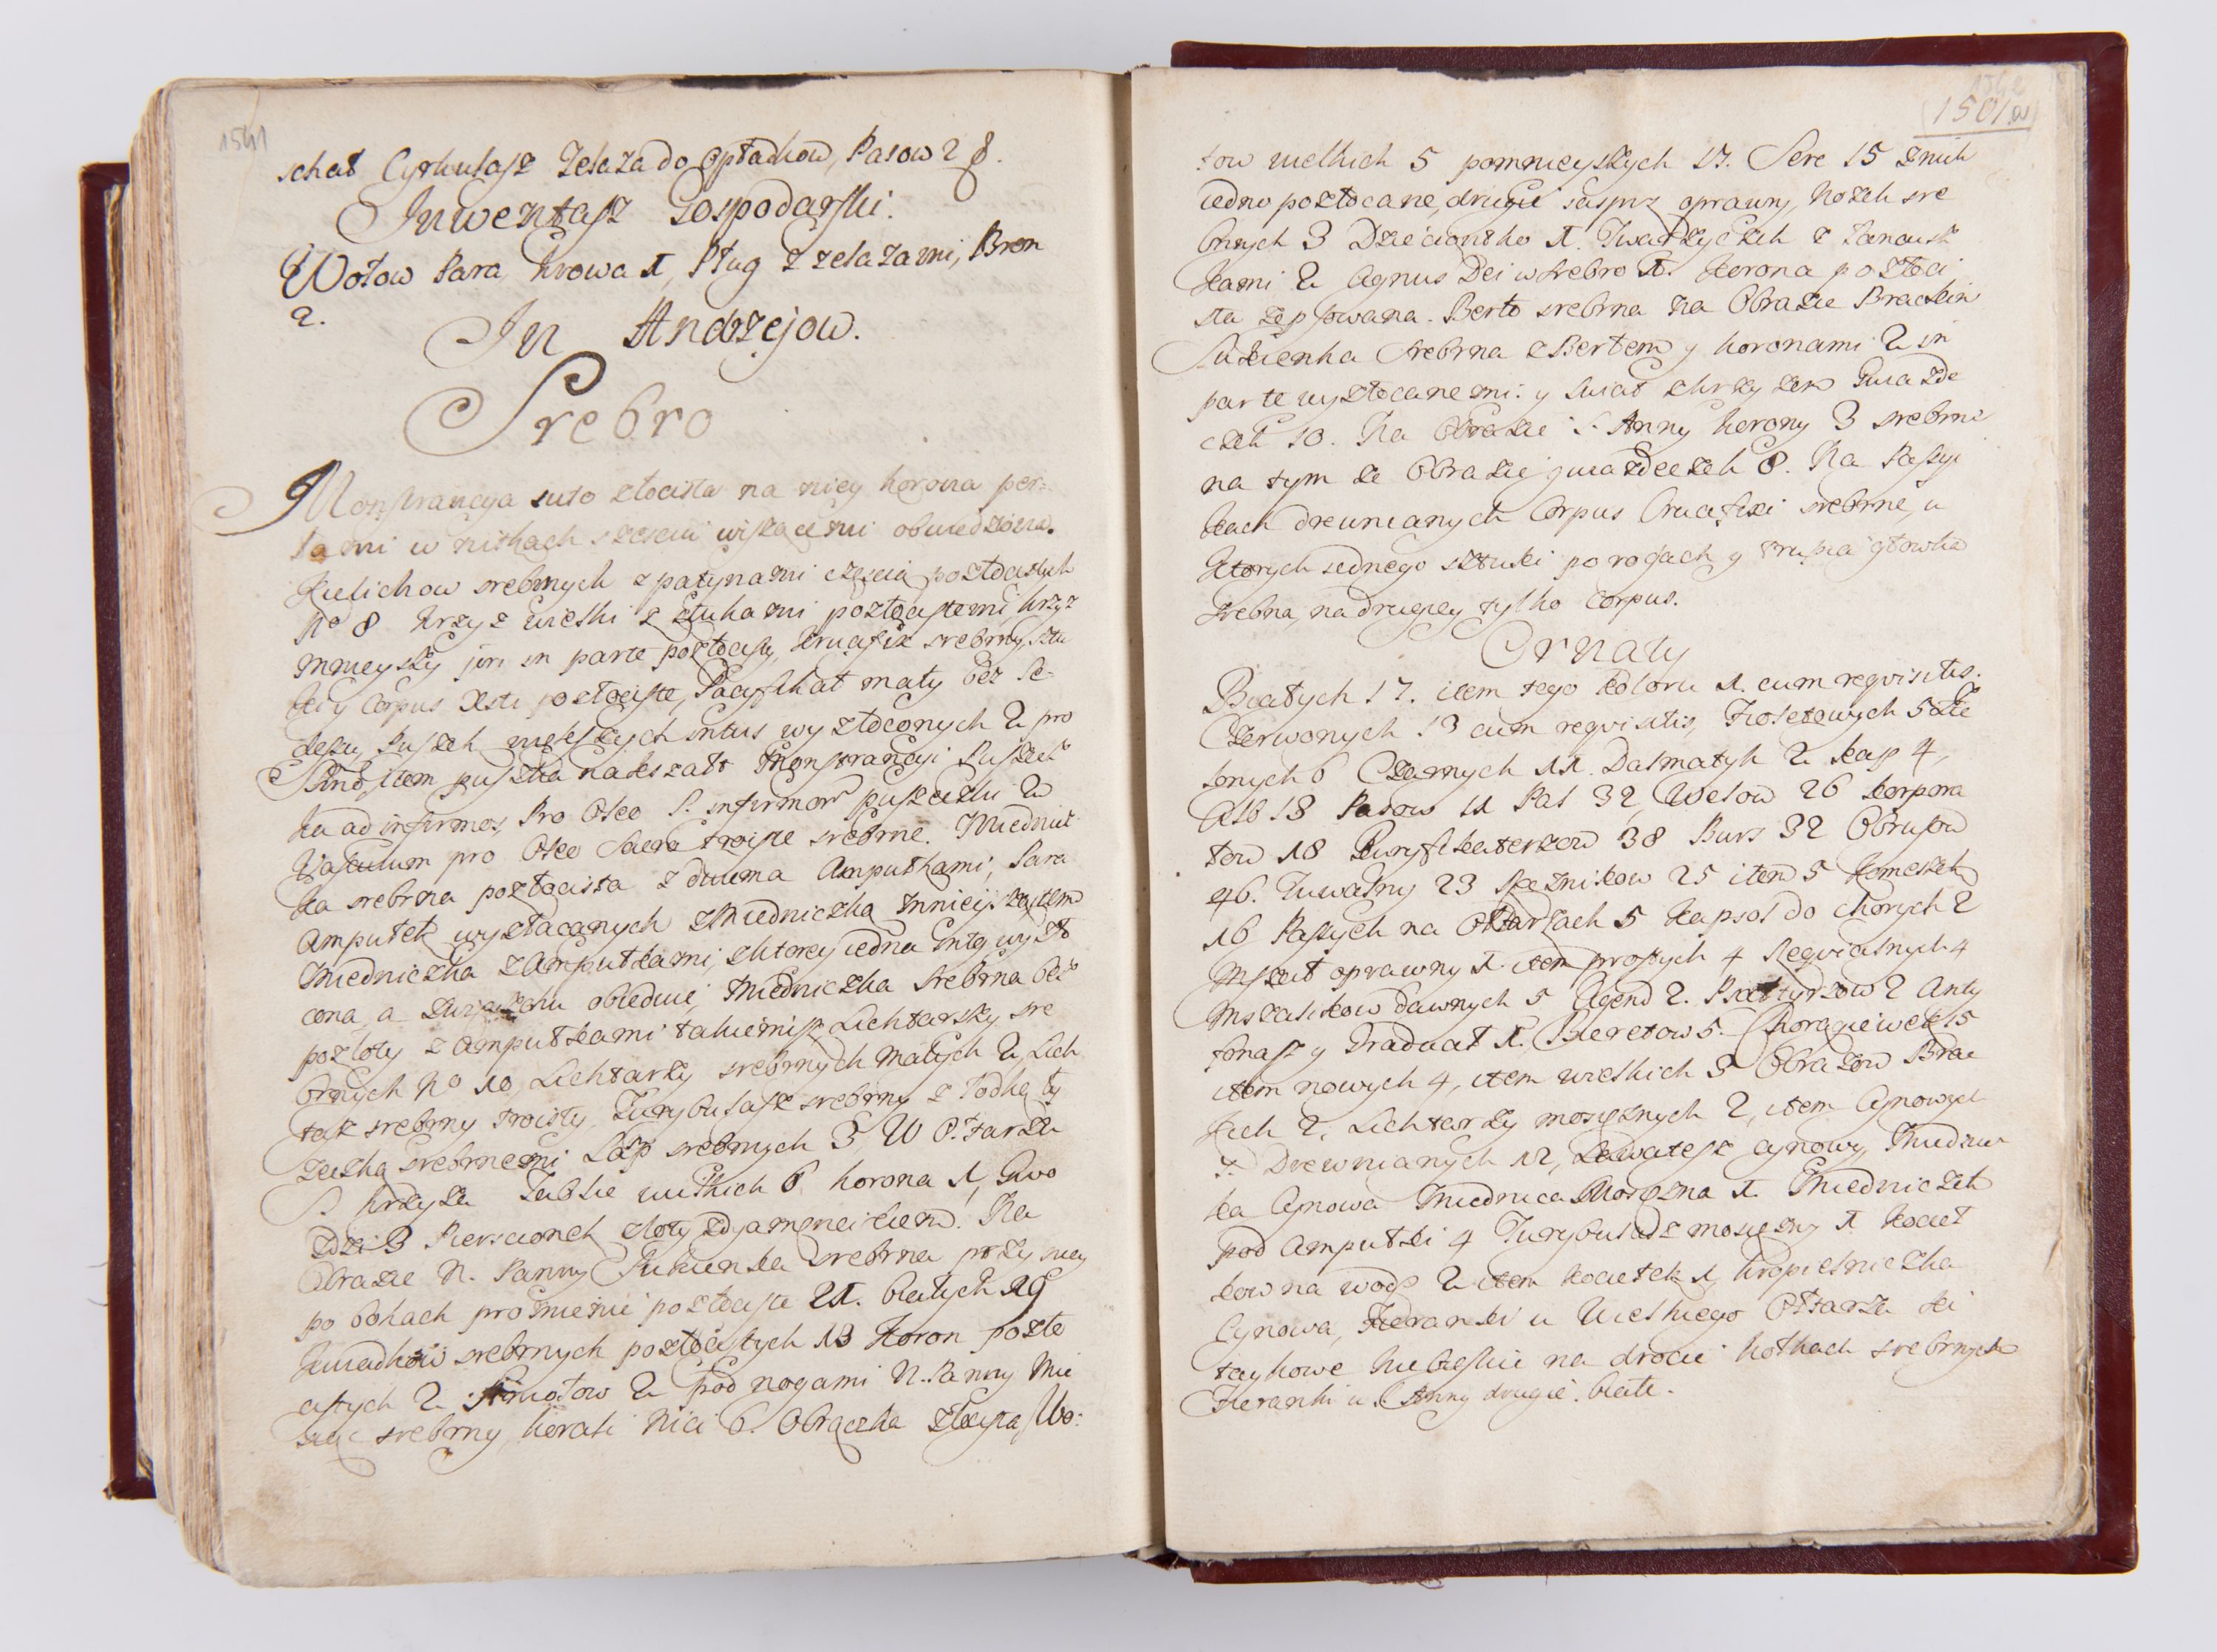 1541
schat Cyrkułasz Zelaza do Opłatkow, Pasow 2 8.
Inwentasz Gospodarski.
Wołow Para Krowa 1, Pług z zelazami, Bron
2.
In Andrzejow.
Srebro
Monstrancya suto złocista na niey korona per-
łami w nitkach sześciu wiszącemi obwiedziona.
Kielichow srebrnych z patynami częscią pozłocistych
No 8 Krzyz wielki z sztukami pozłocistemi, krzyz
mnieyszy in parte pozłocisty, Krucifix srebrny, sztu
ki y Corpus Xsti pozłociste, Pacyfikał mały bez
puszek większych intus wyzłoconych 2 pro
item puszka na kształt Monstrancyi Puszecz
ka ad infirmos, Pro Oleo S. infirmor puszeczki 2
Vasculum pro Oleo Sacro troiste srebrne. Miednicz
ka srebrna pozłocista z dwuma Ampułkami, Para
Ampułek wyzłacanych z Miedniczką mnieyszą item
Miedniczka z Ampułkami, z ktorey iedna intus wyzło
cona a obiedwie, Miedniczka srebrna bez
pozłoty z ampułkami takiemisz Lichtarzy sre
brnych No 10, Lichtarzy srebrnych małych 2, Lich
tasz srebrny troisty, Turybulasz srebrny z łodką ły
żeczką srebrnemi Ląp srebrnych 3, W Ołtarzu
S. Krzyża Tablic wielkich 6 korona 1, Gwo
zdzi 3 Pierscionek złoty z dyamencikiem. Na
Obrazie N. Panny Sukienka srebrna przy niey
po bokach promienie pozłociste 21. białych 19
Kwiatkow srebrnych pozłocistych 13 Koron pozło
cistych 2 Aniołow 2 pod nogami N. Panny Mie
siąc srebrny, korali nici 6. Obrączka złocista, Wo-
1542
(1501.)
tow wielkich 5 pomnieyszych 17. Serc 15 z nich
iedno pozłocane, drugie Jaspis oprawny, Nozek sre
brnych 3 Dzieciontko 1. Twarzyczek z łancusz
kami 2 Agnus Dei w srebro 1. Korona pozłoci
sta zepsowana. Berło srebrna Na Obrazie Brackim
Sukienka srebrna z Bertem y koronami 2 in
parte wyzłocanemi: y swiat z krzyzem Gwiazde
czek 10. Na Obrazie S. Anny korony 3 srebrne
na tym ze Obrazie gwiazdeczek 8. Na Passyi
kach drewnianych Corpus Crucifixi srebrne, u
ktorych iednego sztuki po rogach y trupia głowka
srebna, na drugiey tylko Corpus.
Ornaty
Białych 17. item tego koloru 1. cum reqvisitis.
Czerwonych 13 cum reqvisitis, Fioletowych 5 Zie
lonych 6 Czarnych 11. Dalmatyk 2 kap 4,
Alb 18 Pasow 11 Pal 32, Welow 26 korpora
łow 18 Puryfikaterzow 38 Burs 32 Obrusow
46. Tuwalny 23 Ręcznikow 25 item 5 Komeszek
16 Passych na Ołtarzach 5 Kapsoł do chorych 2
Mszał oprawny 1. item prostych 4 Reqvialnych 4
Mszalikow dawnych 5 Agend 2. Psałtyrzow 2 Anty
fonasz y Graduał 1. Bieretow 5. Chorągiewek 15
item nowych 4, item wielkich 3 Obrazow Brac
kich 2. Lichtarzy mosięznych 2, item Cynowych
7. Drewnianych 12, Lawatesz cynowy, Miednic
ka Cynowa Miednica Mosięzna 1. Miedniczek
pod Ampułki 4 Turybulasz mosięzny 1 Kocieł
kow na wodę 2 item Kociełek 1, kropielniczka
Cynowa, Fieranki u Wielkiego Ołtarza ki
taykowe Niebieskie na drocie kołkach srebrnych
Fieranki u S. Anny drugie. białe.